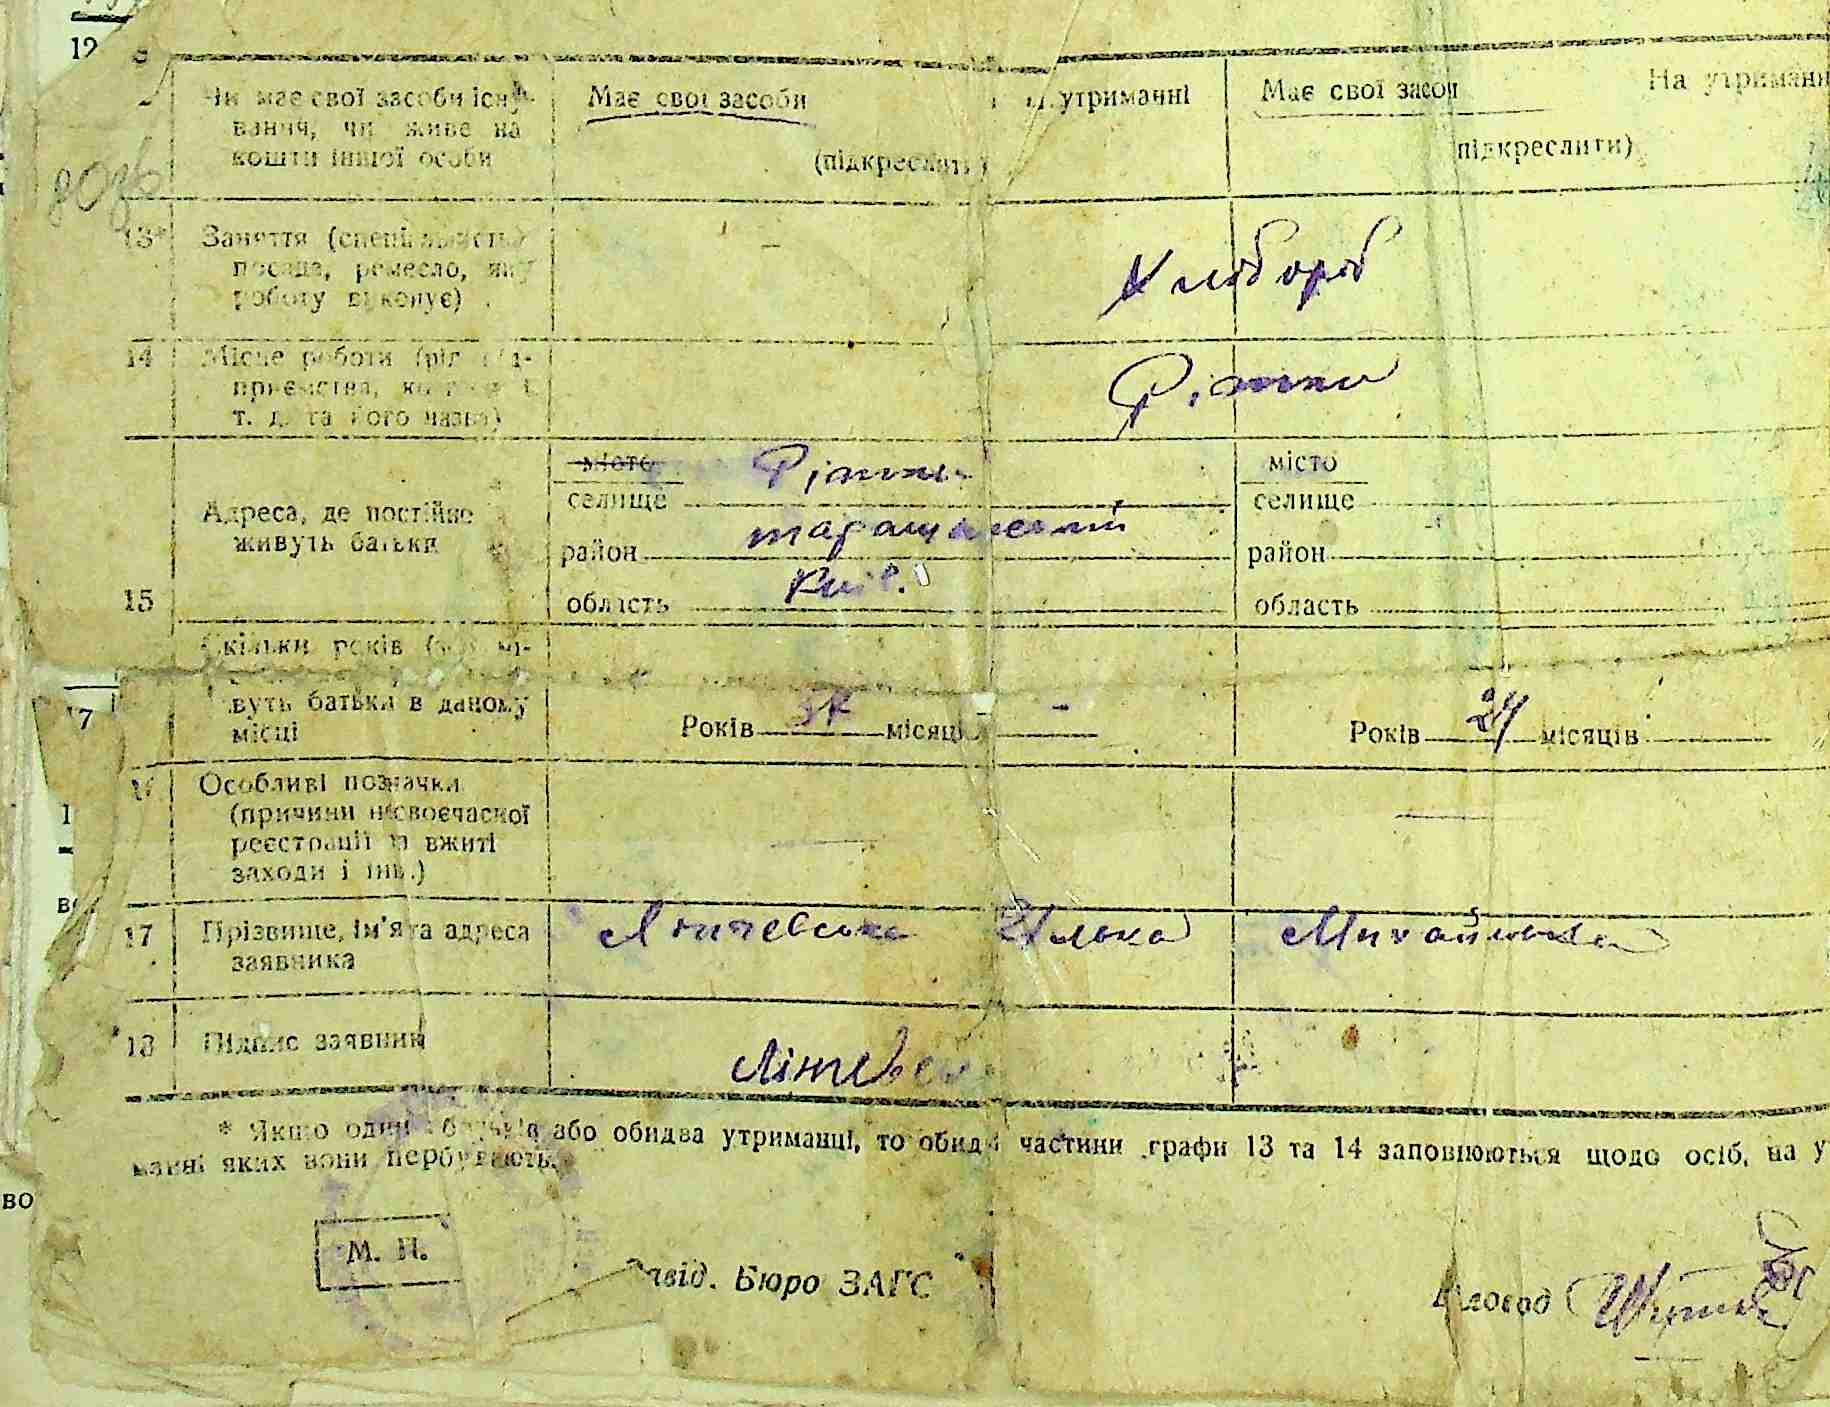 12
Чи має свої засоби існу-
вання, чи живе на
кошти іншої особи
Має свої засоби утриманні
(підкреслити)
Має свої засоби На утриманні
підкреслити)
13* Заняття (спеціальність,
посада, ремесло, яку
роботу виконує)
Хлібороб
14 Місце роботи (рід під-
приємства,
т. д. та його назва)
Ріжки
15 Адреса, де постійно
живуть батьки
місто Ріжки
селище
район таращанський
область Київ.
місто
селище
район
область
Скільки років
вуть батьки в даному
місці
Років 37 місяців -
Років 24 місяців
Особливі позначки
(причини несвоєчасної
реєстрації та вжиті
заходи і інш.)
17 Прізвище, ім'я та адреса
заявника
Михайловна
18 Підпис заявника
* Якщо один з батьків або обидва утриманці, то обидві частини графи 13 та 14 заповнюються щодо осіб, на у
манні яких вони перебувають.
М. П.
Завід. Бюро ЗАГС
Діловод
17
во